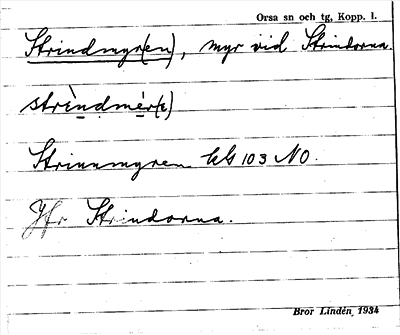 Orsa sn och tg, Kopp. l.
Strindmyr(en), myr vid Strindorna.
strìndmér(e)
Strinnmyren kls 103 NO.
Jfr Strindorna.
Bror Lindén 1934